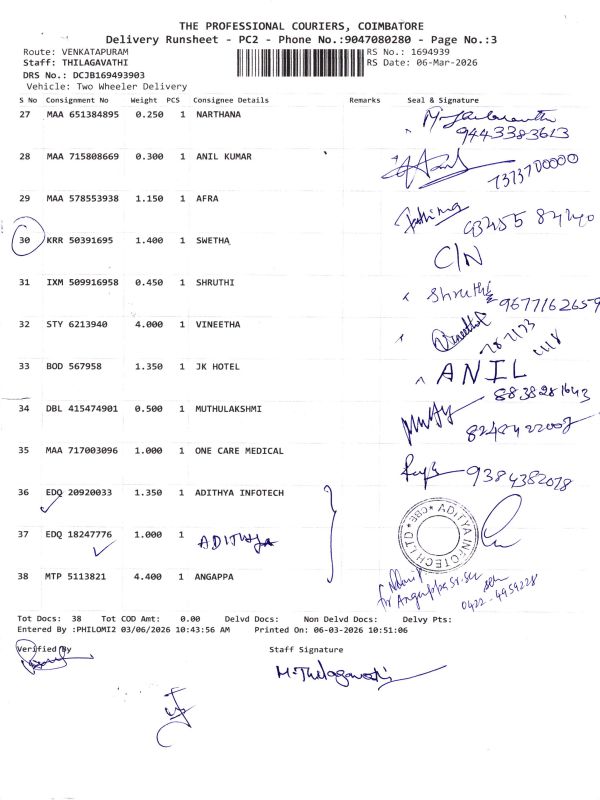 THE PROFESSIONAL COURIERS, COIMBATORE
Delivery Runsheet - PC2 - Phone No.:9047080280 - Page No.:3
Route: VENKATAPURAM RS No.: 1694939
Staff: THILAGAVATHI RS Date: 06-Mar-2026
DRS No.: DCJB169493903
Vehicle: Two Wheeler Delivery
S No Consignment No Weight PCS Consignee Details Remarks Seal & Signature
27 MAA 651384895 0.250 1 NARTHANA
9443383613
28 MAA 715808669 0.300 1 ANIL KUMAR
7373700000
29 MAA 578553938 1.150 1 AFRA
Fathima
30 KRR 50391695 1.400 1 SWETHA
C/N
31 IXM 509916958 0.450 1 SHRUTHI
Shruthi 9677162659
32 STY 6213940 4.000 1 VINEETHA
Vineetha
33 BOD 567958 1.350 1 JK HOTEL
ANIL
8838281643
34 DBL 415474901 0.500 1 MUTHULAKSHMI
35 MAA 717003096 1.000 1 ONE CARE MEDICAL
9384382078
36 EDQ 20920033 1.350 1 ADITHYA INFOTECH
ADITYA INFOTECH LTD * CBE *
37 EDQ 18247776 1.000 1 ADITHYA
38 MTP 5113821 4.400 1 ANGAPPA
for Angappa Sr. Sec
0422-4959228
Tot Docs: 38 Tot COD Amt: 0.00 Delvd Docs: Non Delvd Docs: Delvy Pts:
Entered By :PHILOMI2 03/06/2026 10:43:56 AM Printed On: 06-03-2026 10:51:06
Verified By Staff Signature
M. Thilagavathi